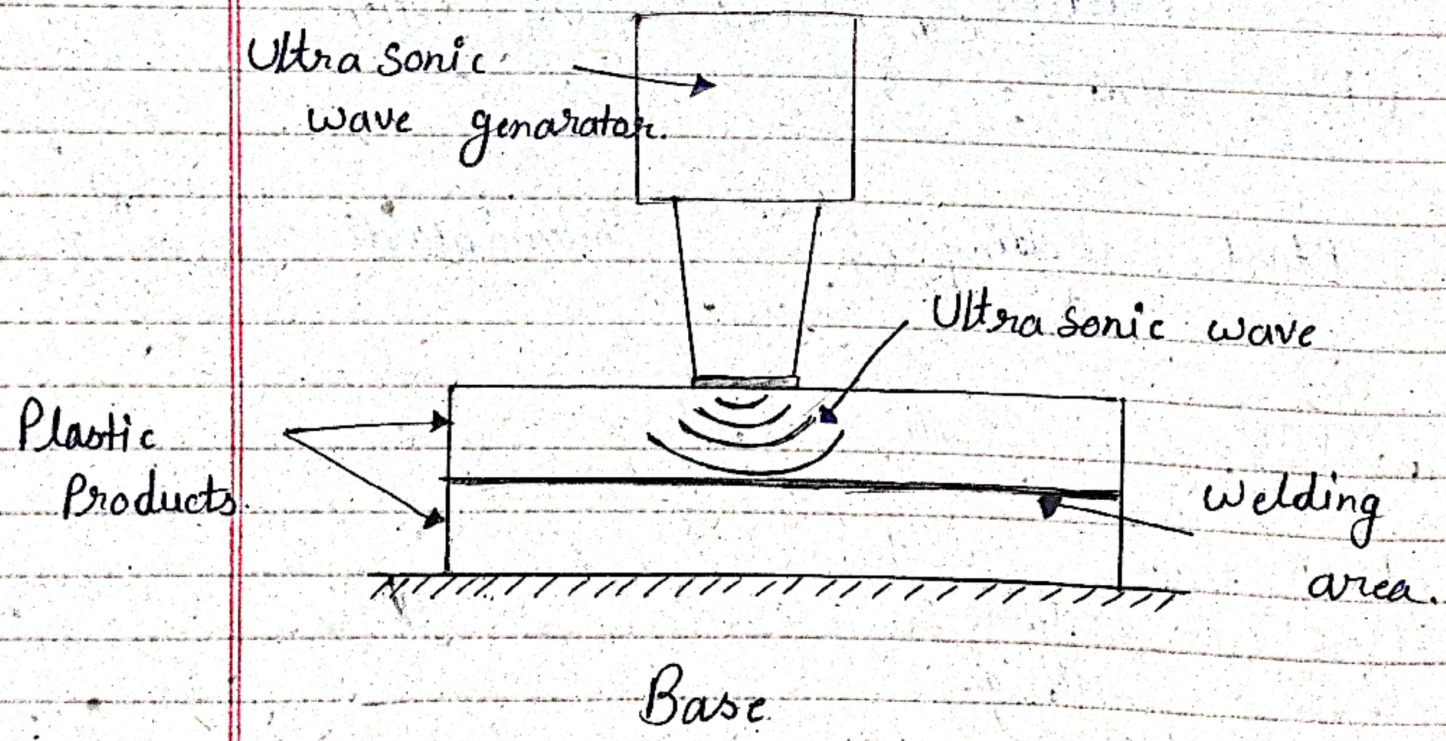 Ultra sonic
wave genarator.
Ultra sonic wave
Plastic
Products.
Welding
area.
Base